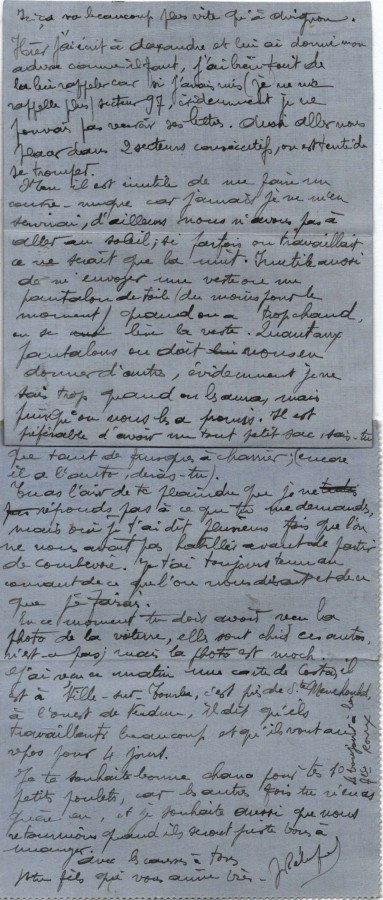 Ici, ça va beaucoup plus vite qu'à Avignon.
Hier j'ai écrit à Alexandre et lui ai donné mon
adresse comme il faut, j'ai bien fait de
la lui rappeler car si j'avais mis (je ne me
rappelle plus) secteur 97, évidemment je ne
pouvais pas recevoir ses lettres. Aussi aller nous
placer dans 2 secteurs consécutifs, on est tenté de
se tromper.
Non il est inutile de me faire un
couvre-nuque car jamais je ne m'en
servirai, d'ailleurs nous n'avons pas à
aller au soleil; si parfois on travaillait
ce ne serait que la nuit. Inutile aussi
de m'envoyer une veste ou un
pantalon de toile (du moins pour le
moment) quand on a trop chaud,
on se tire la veste. Quant aux
pantalons on doit nous en
donner d'autres, évidemment je ne
sais trop quand on les aura, mais
puisqu'on nous l'a promis. Il est
préférable d'avoir un tout petit sac, sais-tu
que tant de fourques à charrier; (encore
il a l'auto, diras-tu).
Tu as l'air de te plaindre que je ne
réponds pas à ce que tu me demandes,
mais moi je t'ai dit plusieurs fois que l'on
ne nous avait pas habillés avant de partir
de . Je t'ai toujours tenu au
courant de ce que l'on nous disait et de ce
que je faisais.
En ce moment tu dois avoir reçu la
photo de la voiture, elles sont chic ces autos,
n'est-ce pas; mais la photo est moche.
J'ai reçu ce matin une carte de Costa, il
est à Ville-sur-Tourbe, c'est près de Ste Menehould,
à l'ouest de Verdun, il dit qu'ils
travaillent beaucoup et qu'ils vont au
repos pour 4 jours.
Je te souhaite bonne chance pour tes 10
petits poulets, car les autres fois tu n'en as
guère eu, et je souhaite aussi que nous
retournions quand ils seront juste bons à
manger.
avec les caresses à tous
votre fils qui vous aime bien.
le bonjour à la
Roux